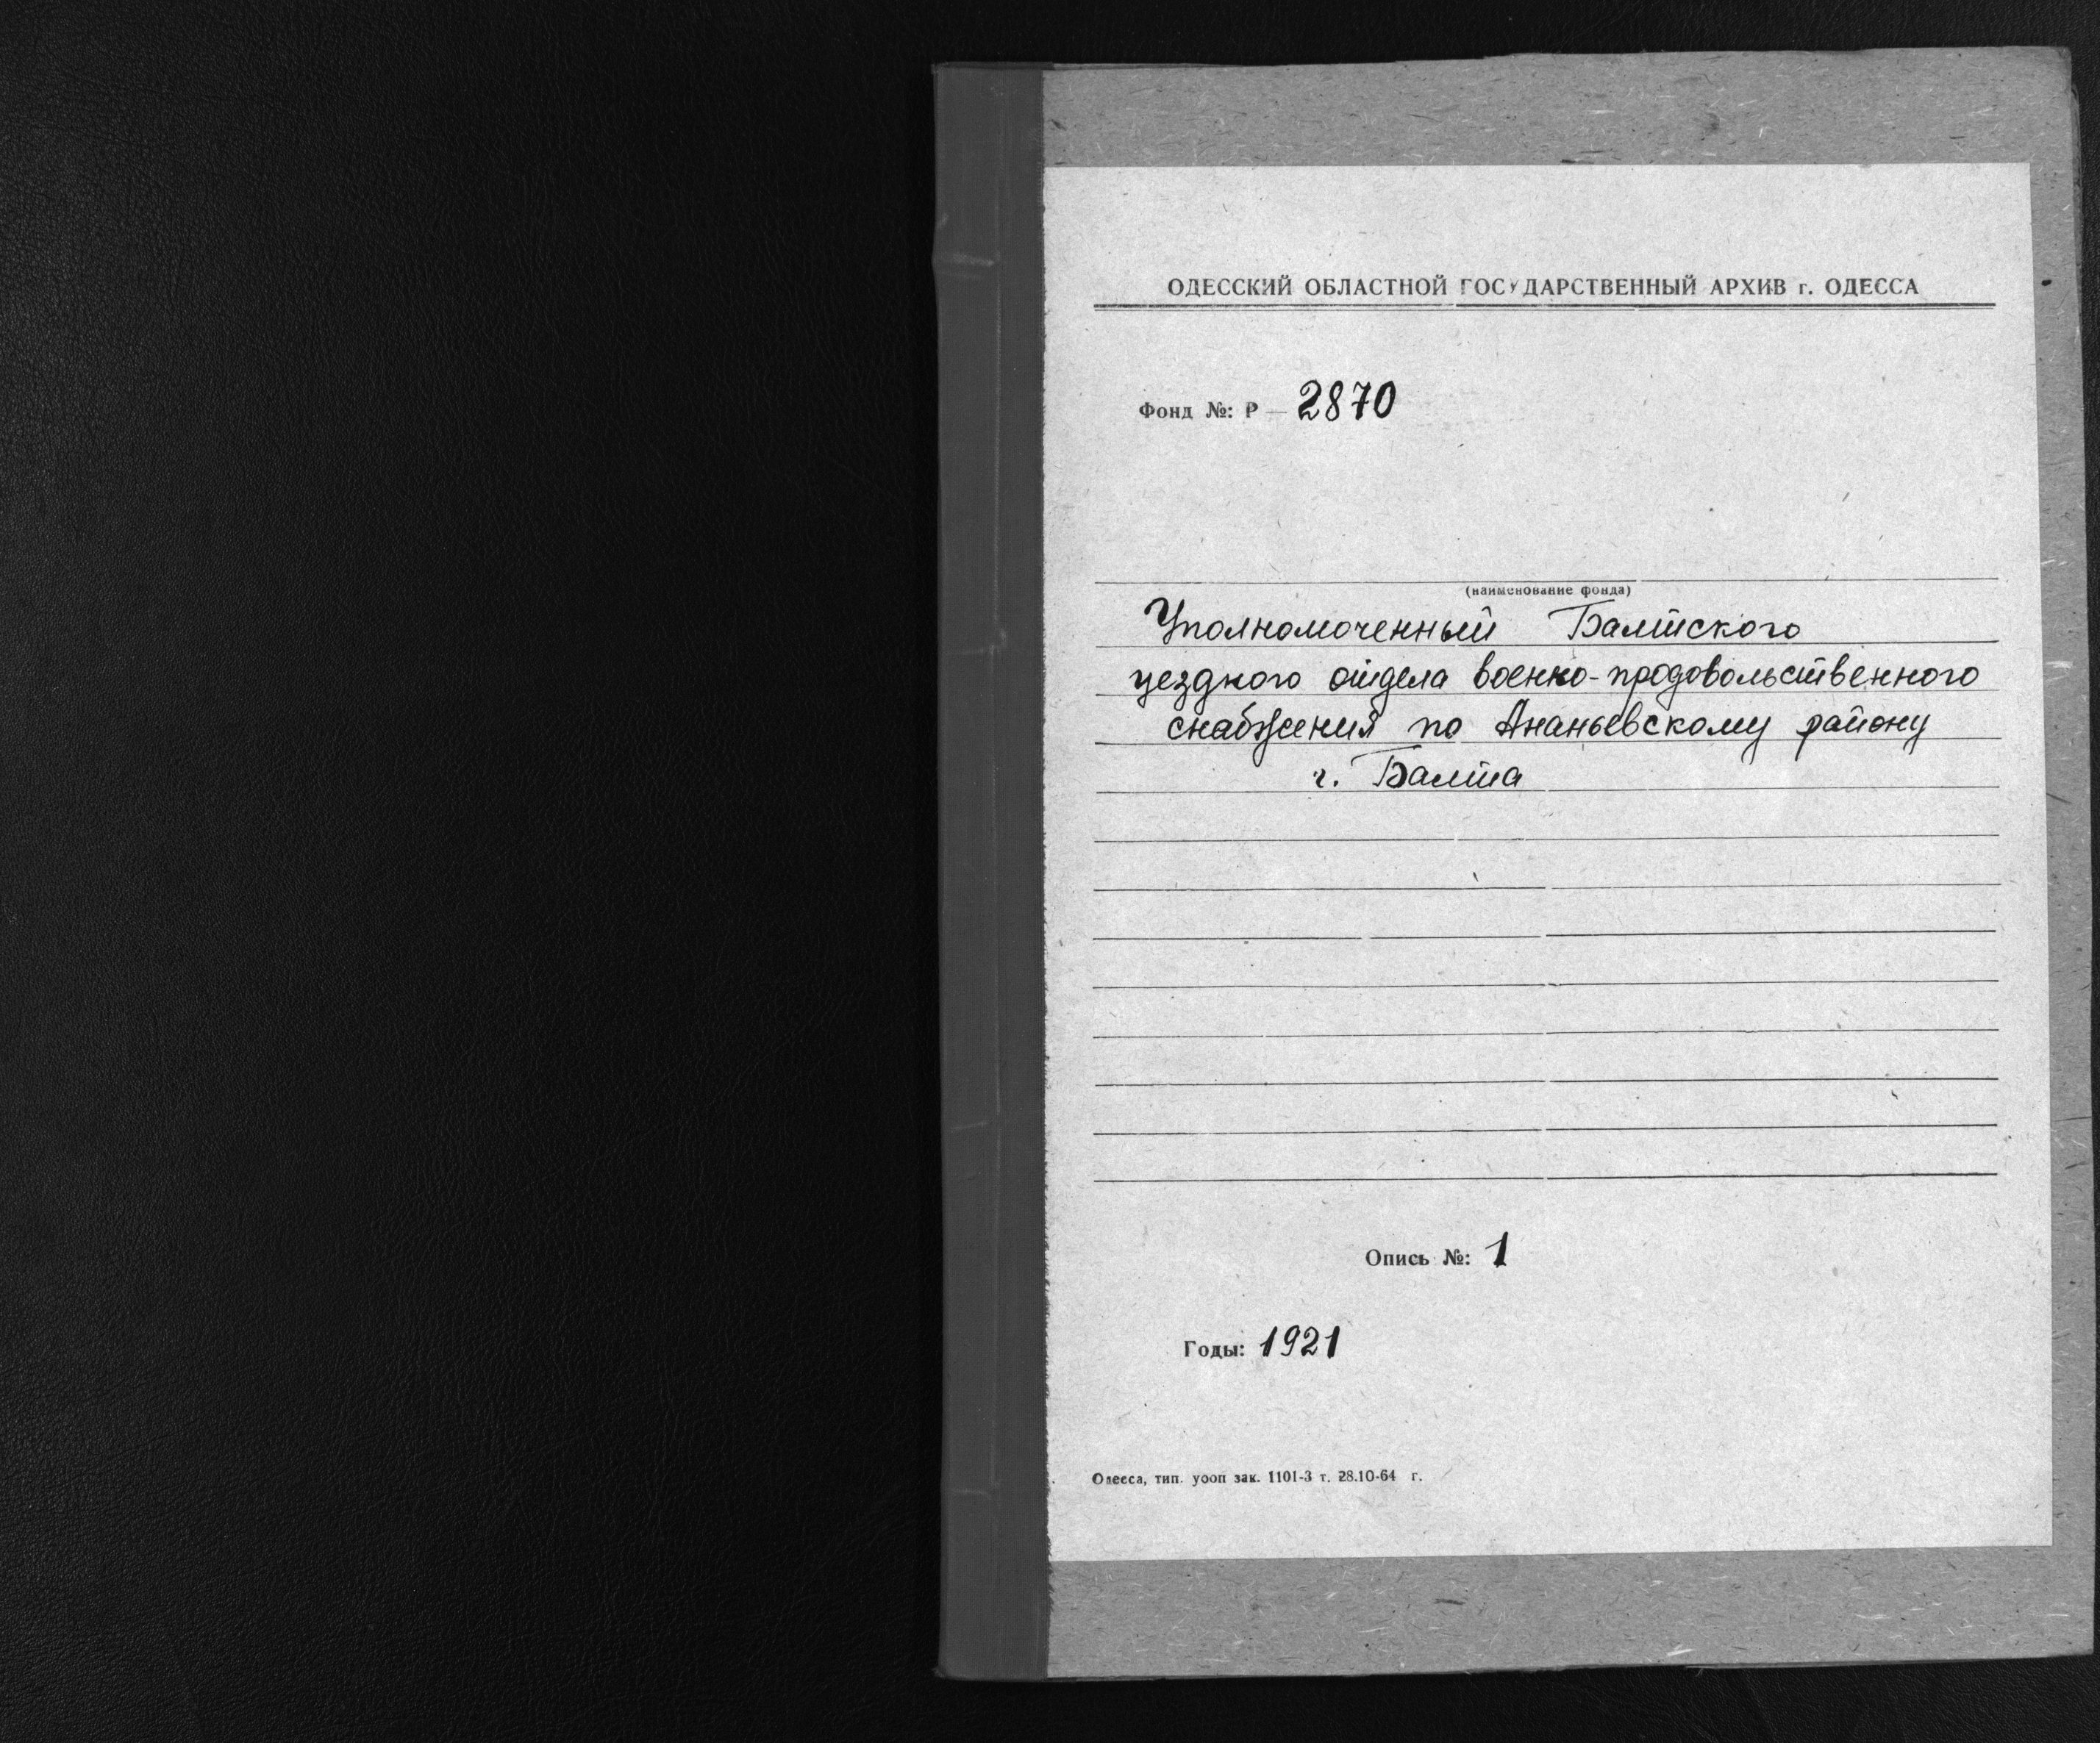 ОДЕССКИЙ ОБЛАСТНОЙ ГОСУДАРСТВЕННЫЙ АРХИВ г. ОДЕССА
Фонд №: Р — 2870
(наименование фонда)
Уполномоченный Балтского
уездного отдела военно-продовольственного
снабжения по Ананьевскому району
г. Балта
Опись №: 1
Годы: 1921
Одесса, тип. уооп зак. 1101-3 т. 28.10-64 г.